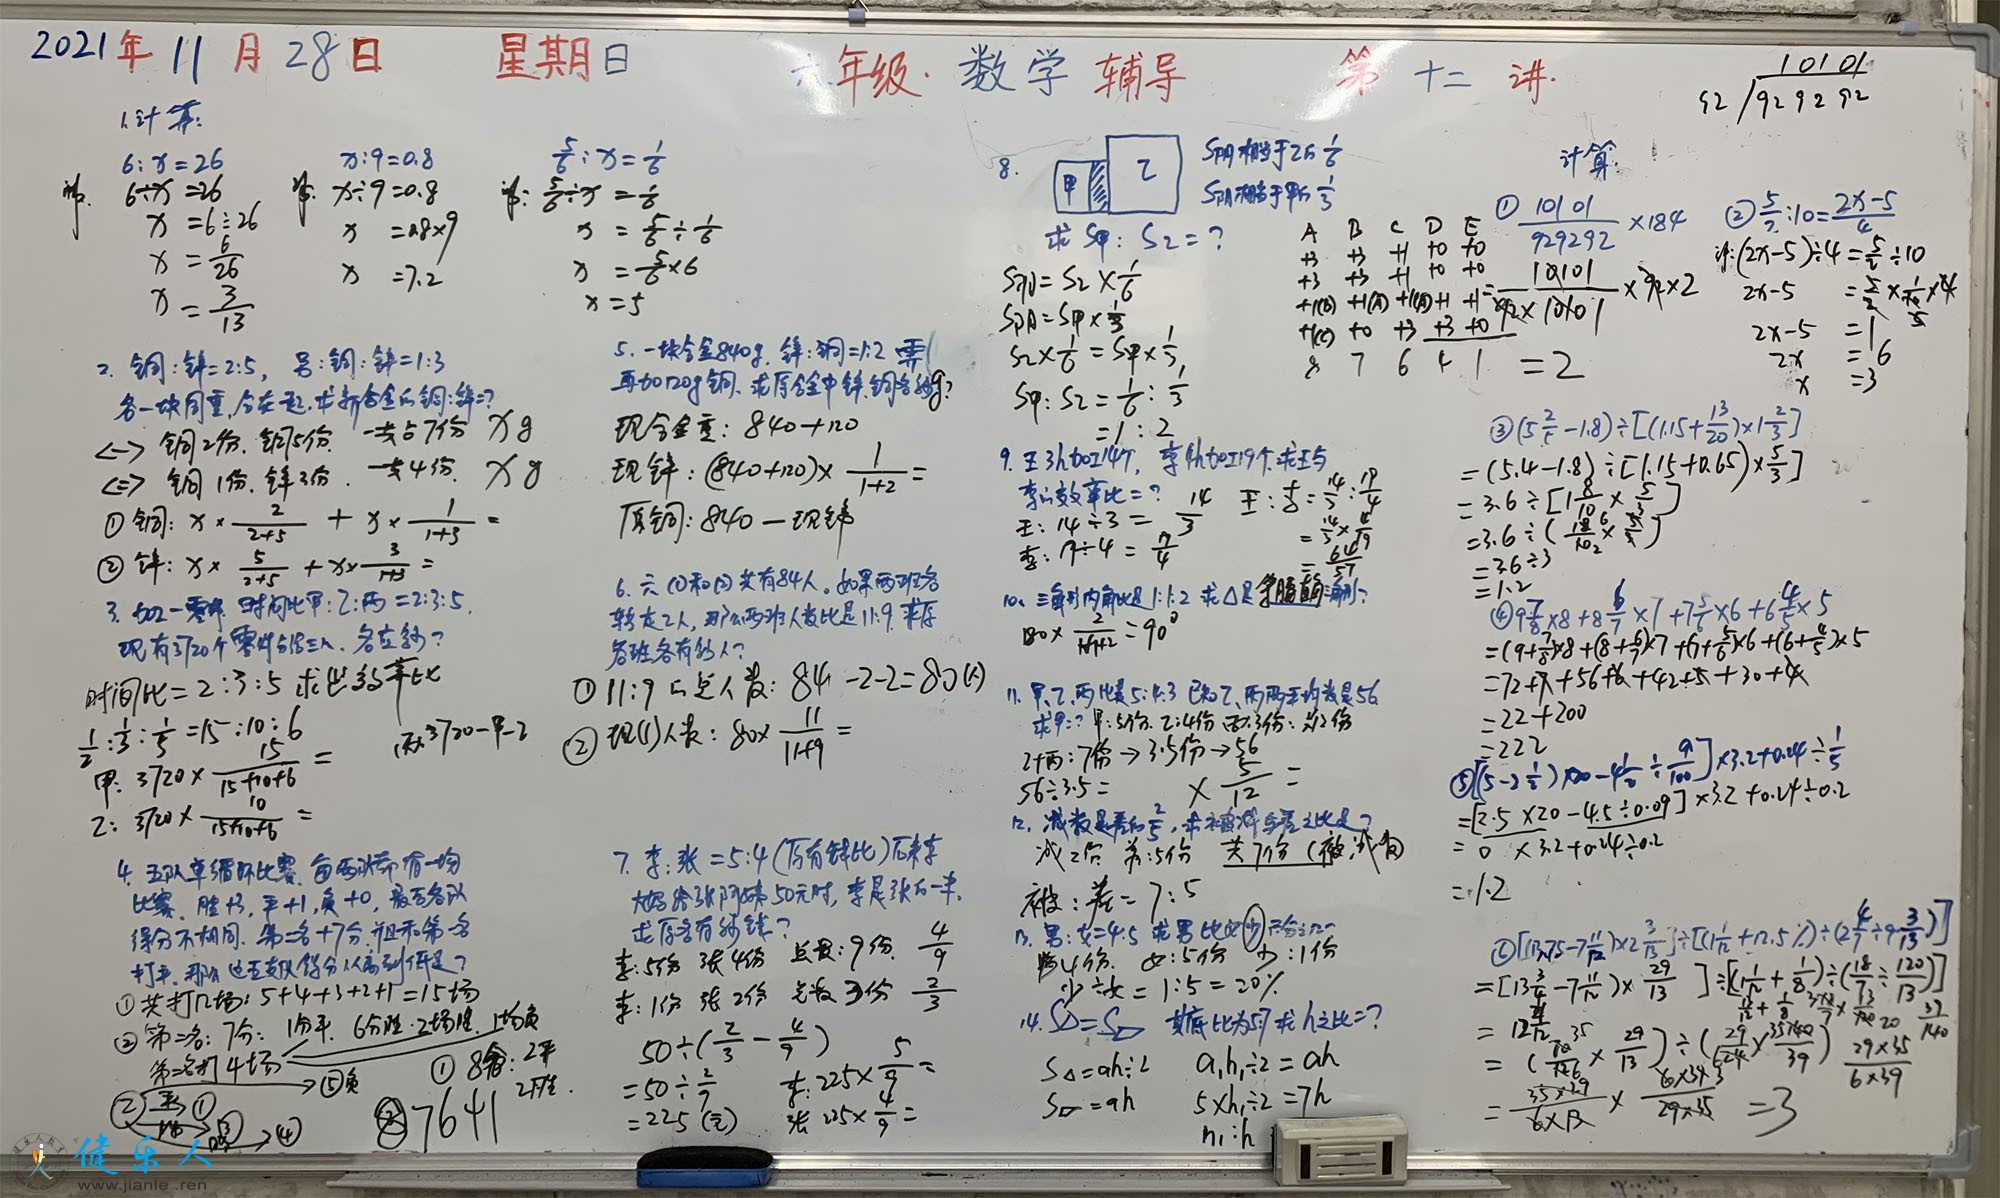 2021年11月28日 星期日 六年级.数学辅导 第十二讲.
10101
92 929292
1.计算:
6:x=26
6÷x=26
x=6÷26
x=6/26
x=3/13
x:9=0.8
x÷9=0.8
x=0.8×9
x=7.2
5/6:x=1/6
5/6÷x=1/6
x=5/6÷1/6
x=5/6×6
x=5
2. 铜:锌=2:5, 另:铜:锌=1:3
各一块同重,合在一起,求新合金的铜:锌=?
一共占7份 xg
铜1份.锌3份. 一共4份. xg
①铜: x×2/(2+5) + x×1/(1+3) =
②锌: x×5/(2+5) + x×3/(1+3) =
3. 加工一零件 时间比甲:乙:丙=2:3:5.
现有3720个零件
时间比=2:3:5 求出效率比
1/2:1/3:1/5=15:10:6
甲: 3720×15/(15+10+6) =
丙:3720-甲-乙
乙: 3720×10/(15+10+6) =
4. 五队单循环比赛, 每两队都有一场
比赛, 胜+3, 平+1, 负+0, 最后各队
得分不相同. 第二名+7分,并且和第一名
打平,那么这五支队得分从高到低是?
①共打几场: 5+4+3+2+1=15场
②第二名: 7分: 1分平. 6分胜.2场胜.1场负
第二名打4场
⑤负
①8分:2平
2胜.
7641
5. 一块合金840g. 锌:铜=1:2 需
再加120g铜. 求原合金中锌.铜各
现合金重: 840+120
现锌: (840+120)×1/(1+2)=
原铜: 840-现锌
6. 六(1)和(2)共有84人。如果两班各
转走2人, 那么两班人数比是11:9. 求原
各班各有多少人?
①11:9的总人数: 84-2-2=80(人)
②现(1)人数: 80×11/(11+9)=
7. 李:张=5:4(原有钱比)后来李
大妈给张阿姨50元时, 李是张的一半.
求原各有多少钱?
李:5份 张4份 总数:9份. 4/9
李:1份 张2份 总数3份 2/3
50÷(2/3-4/9)
=50÷2/9
=225(元)
李:225×5/9=
张 225×4/9=
8.
甲 乙
S阴相当于乙的1/6
S阴相当于甲的1/3
求S甲:S乙=?
S阴=S乙×1/6
S阴=S甲×1/3
S乙×1/6=S甲×1/3
S甲:S乙=1/6:1/3
=1:2
A B C D E
+3 +3 +1 +0 +0
+3 +3 +1 +0 +0
8 7 6 4 1
9. 王3h加工14个, 李4h加工19个.求王与
李的效率比=?
王: 14÷3=14/3
李: 19÷4=19/4
王:李=14/3:19/4
=14/3×4/19
=
10. 三角形内角比是1:1:2 求△是等腰直角三角形?
180×2/(1+1+2)=90°
11. 甲.乙.丙比是5:4:3 已知乙.丙两平均数是56
求甲=? 甲:5份.乙:4份 丙:3份:
乙+丙:7份→3.5份→56
56÷3.5=
×5/12=
12. 减数是差的2/5, 求被减与差之比是?
减2份 差:5份 共7份(被减数)
被:差=7:5
13. 男:女=4:5 求男比女少
男4份. 女:5份 少:1份
少÷女=1:5=20%
14. S△=S▱ 其底比为5:7 求h之比=?
S△=ah÷2
S▱=ah
a₁h₁÷2=ah
5×h₁÷2=7h
h₁:h
计算.
①10101/929292×184
=10101/(92×10101)×92×2
=2
②5/2:10=(2x-5)/4
(2x-5)÷4=5/2÷10
2x-5=5/2×1/10×4
2x-5=1
2x=6
x=3
③(5 2/5-1.8)÷[(1.15+13/20)×1 2/3]
=(5.4-1.8)÷[1.15+0.65)×5/3]
=3.6÷[1 8/10×5/3]
=3.6÷(18/10×5/3)
=3.6÷3
=1.2
④9 7/8×8+8 6/7×7+7 5/6×6+6 4/5×5
=(9+7/8)×8+(8+6/7)×7+(7+5/6)×6+(6+4/5)×5
=72+7+56+6+42+5+30+4
=22+200
=222
⑤[(5-2 1/2)×20-4 1/2÷9/100]×3.2+0.24÷1/5
=[2.5×20-4.5÷0.09]×3.2+0.24÷0.2
=0×3.2+0.24÷0.2
=1.2
⑥[13.75-7 11/12)×2 3/13]÷[(1 1/12+12.5%)÷(2 4/7÷9 3/13)]
=[13 3/4-7 11/12)×29/13]÷[(1 1/12+1/8)÷(18/7÷120/13)]
=(35/6×29/13)÷(29/24×
29×35/6×39
=35×29/6×13×6×39/29×35=3
健乐人
www.jianle.ren